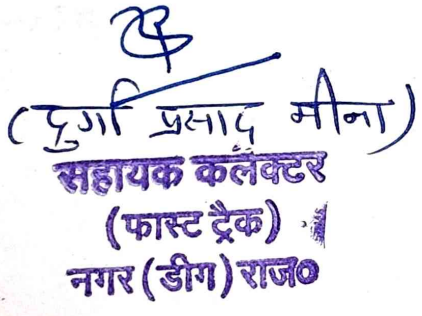 (दुर्गा प्रसाद मीना)
सहायक कलैक्टर
(फास्ट ट्रैक)
नगर (डीग) राज०